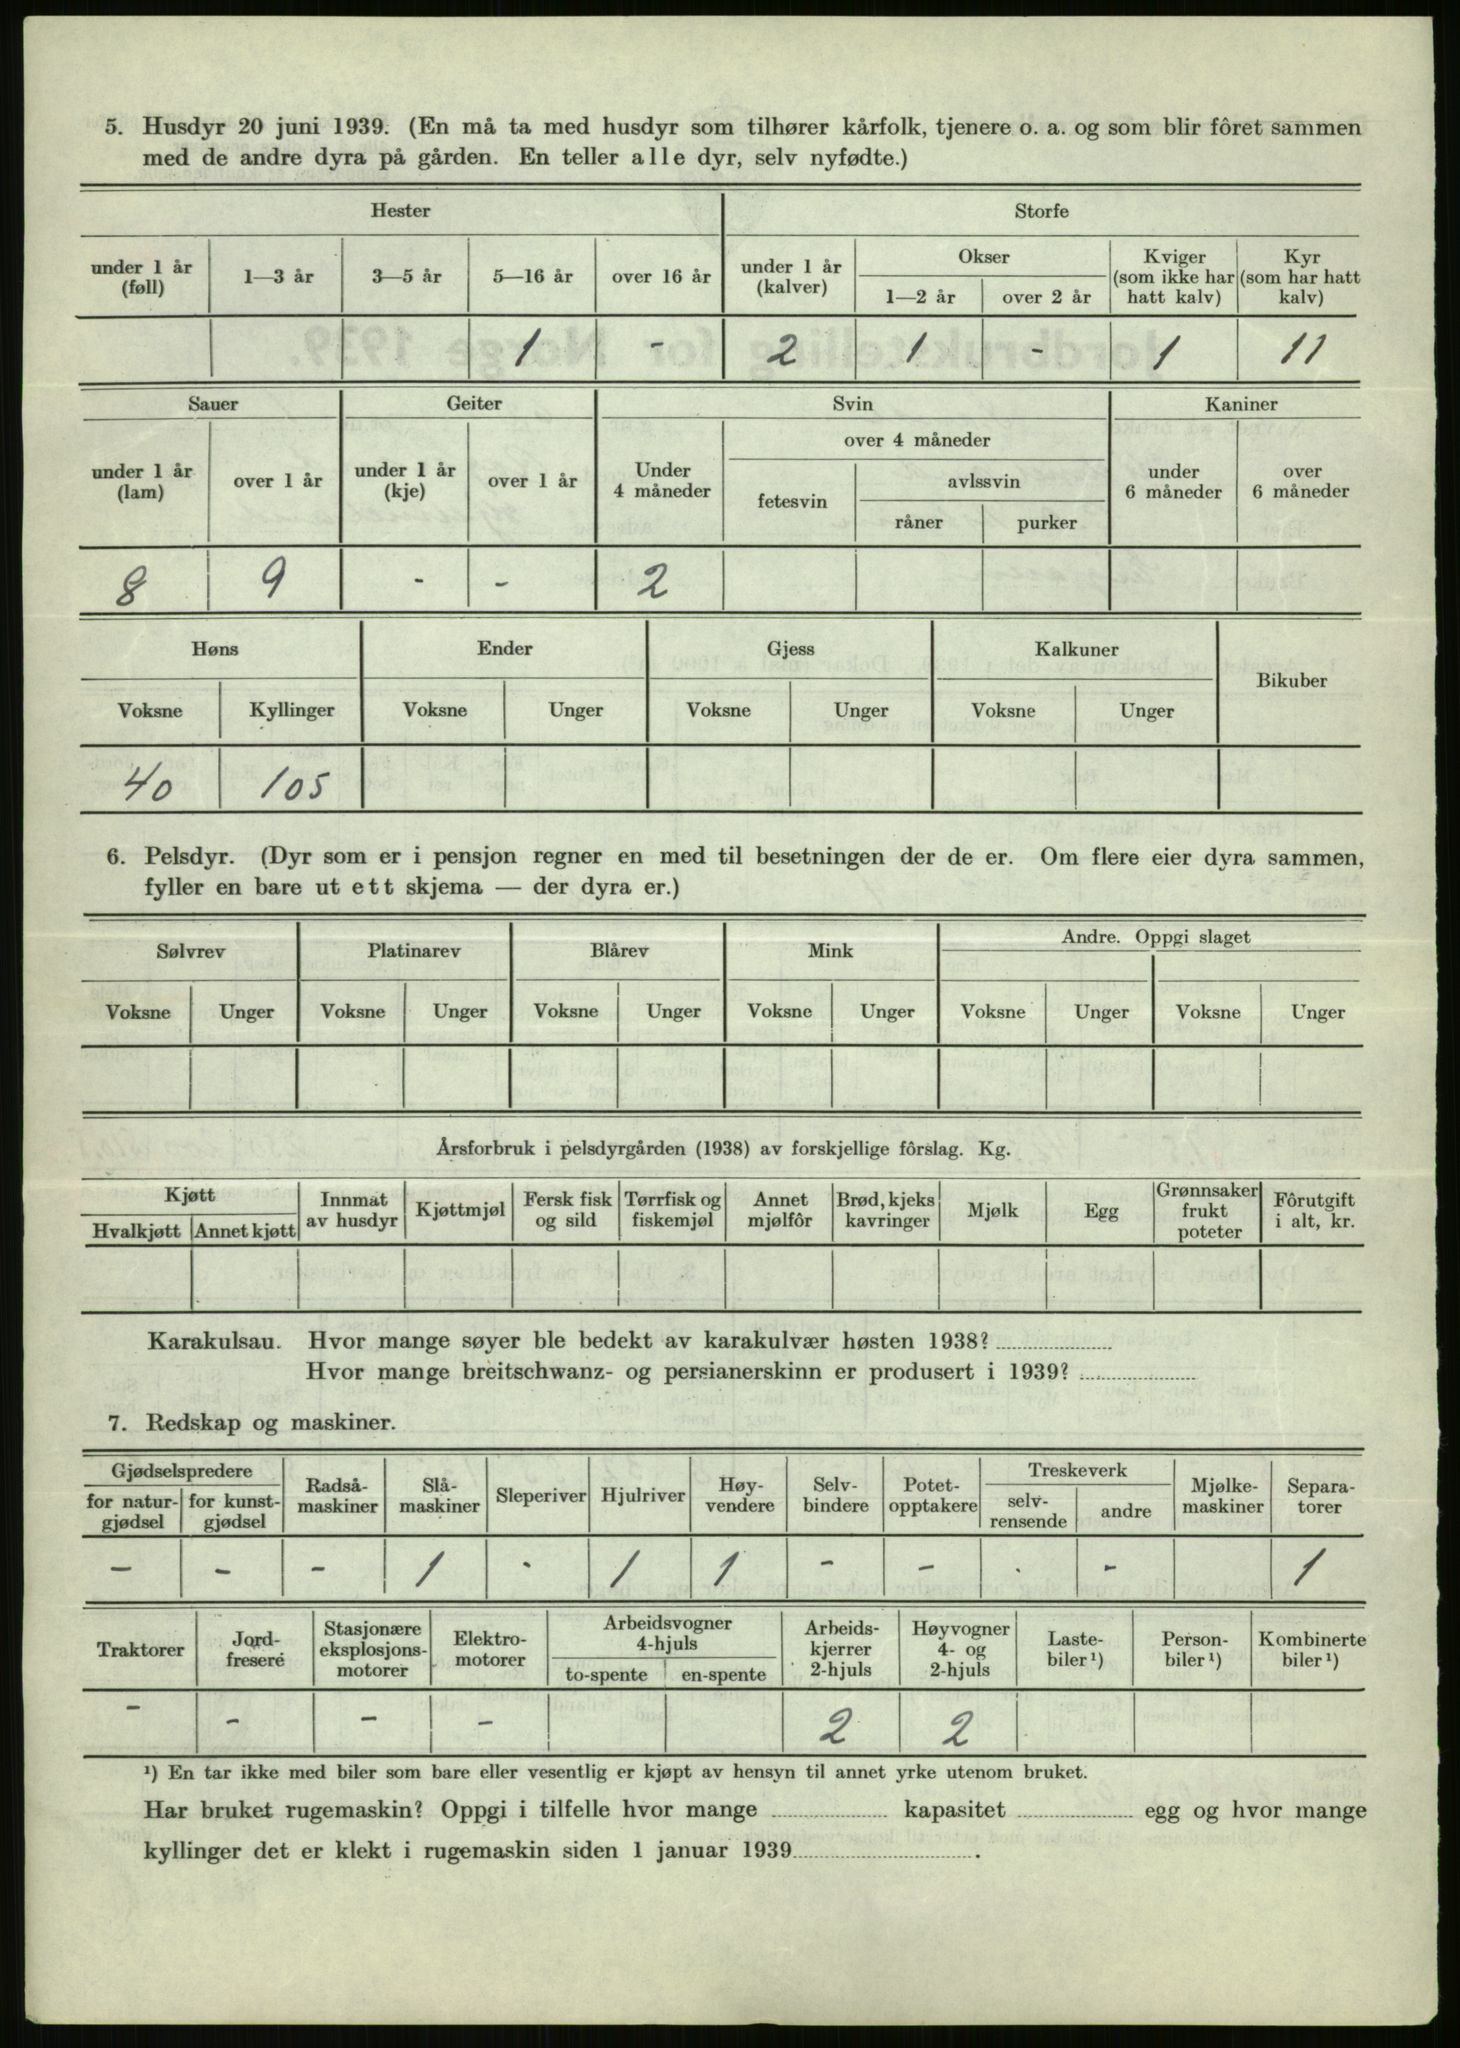 5. Husdyr 20 juni 1939. (En må ta med husdyr som tilhører kårfolk, tjenere o. a. og som blir fôret sammen
med de andre dyra på gården. En teller alle dyr, selv nyfødte.)
Hester Storfe
under 1 år (føll) 1—3 år 3—5 år 5—16 år over 16 år under 1 år (kalver) Okser 1—2 år over 2 år Kviger (som ikke har hatt kalv) Kyr (som har hatt kalv)
1 - 2 1 - 1 11
Sauer Geiter Svin Kaniner
over 4 måneder
under 1 år (lam) over 1 år under 1 år (kje) over 1 år Under 4 måneder fetesvin avlssvin råner purker under 6 måneder over 6 måneder
8 9 - - 2
Høns Ender Gjess Kalkuner Bikuber
Voksne Kyllinger Voksne Unger Voksne Unger Voksne Unger
40 105
6. Pelsdyr. (Dyr som er i pensjon regner en med til besetningen der de er. Om flere eier dyra sammen,
fyller en bare ut ett skjema — der dyra er.)
Sølvrev Platinarev Blårev Mink Andre. Oppgi slaget
Voksne Unger Voksne Unger Voksne Unger Voksne Unger Voksne Unger Voksne Unger
Årsforbruk i pelsdyrgården (1938) av forskjellige fôrslag. Kg.
Kjøtt Hvalkjøtt Annet kjøtt Innmat av husdyr Kjøttmjøl Fersk fisk og sild Tørrfisk og fiskemjøl Annet mjølfôr Brød, kjeks kavringer Mjølk Egg Grønnsaker frukt poteter Fôrutgift i alt, kr.
Karakulsau. Hvor mange søyer ble bedekt av karakulvær høsten 1938?
Hvor mange breitschwanz- og persianerskinn er produsert i 1939?
7. Redskap og maskiner.
Gjødselspredere for natur- gjødsel for kunst- gjødsel Radså- maskiner Slå- maskiner Sleperiver Hjulriver Høy- vendere Selv- bindere Potet- opptakere Treskeverk selv- rensende andre Mjølke- maskiner Separa- torer
- - - 1 - 1 1 - - . - 1
Traktorer Jord- fresere Stasjonære eksplosjons- motorer Elektro- motorer Arbeidsvogner 4-hjuls to-spente en-spente Arbeids- kjerrer 2-hjuls Høyvogner 4- og 2-hjuls Laste- biler ¹) Person- biler ¹) Kombinerte biler ¹)
- - - - 2 2
¹) En tar ikke med biler som bare eller vesentlig er kjøpt av hensyn til annet yrke utenom bruket.
Har bruket rugemaskin? Oppgi i tilfelle hvor mange kapasitet egg og hvor mange
kyllinger det er klekt i rugemaskin siden 1 januar 1939 .